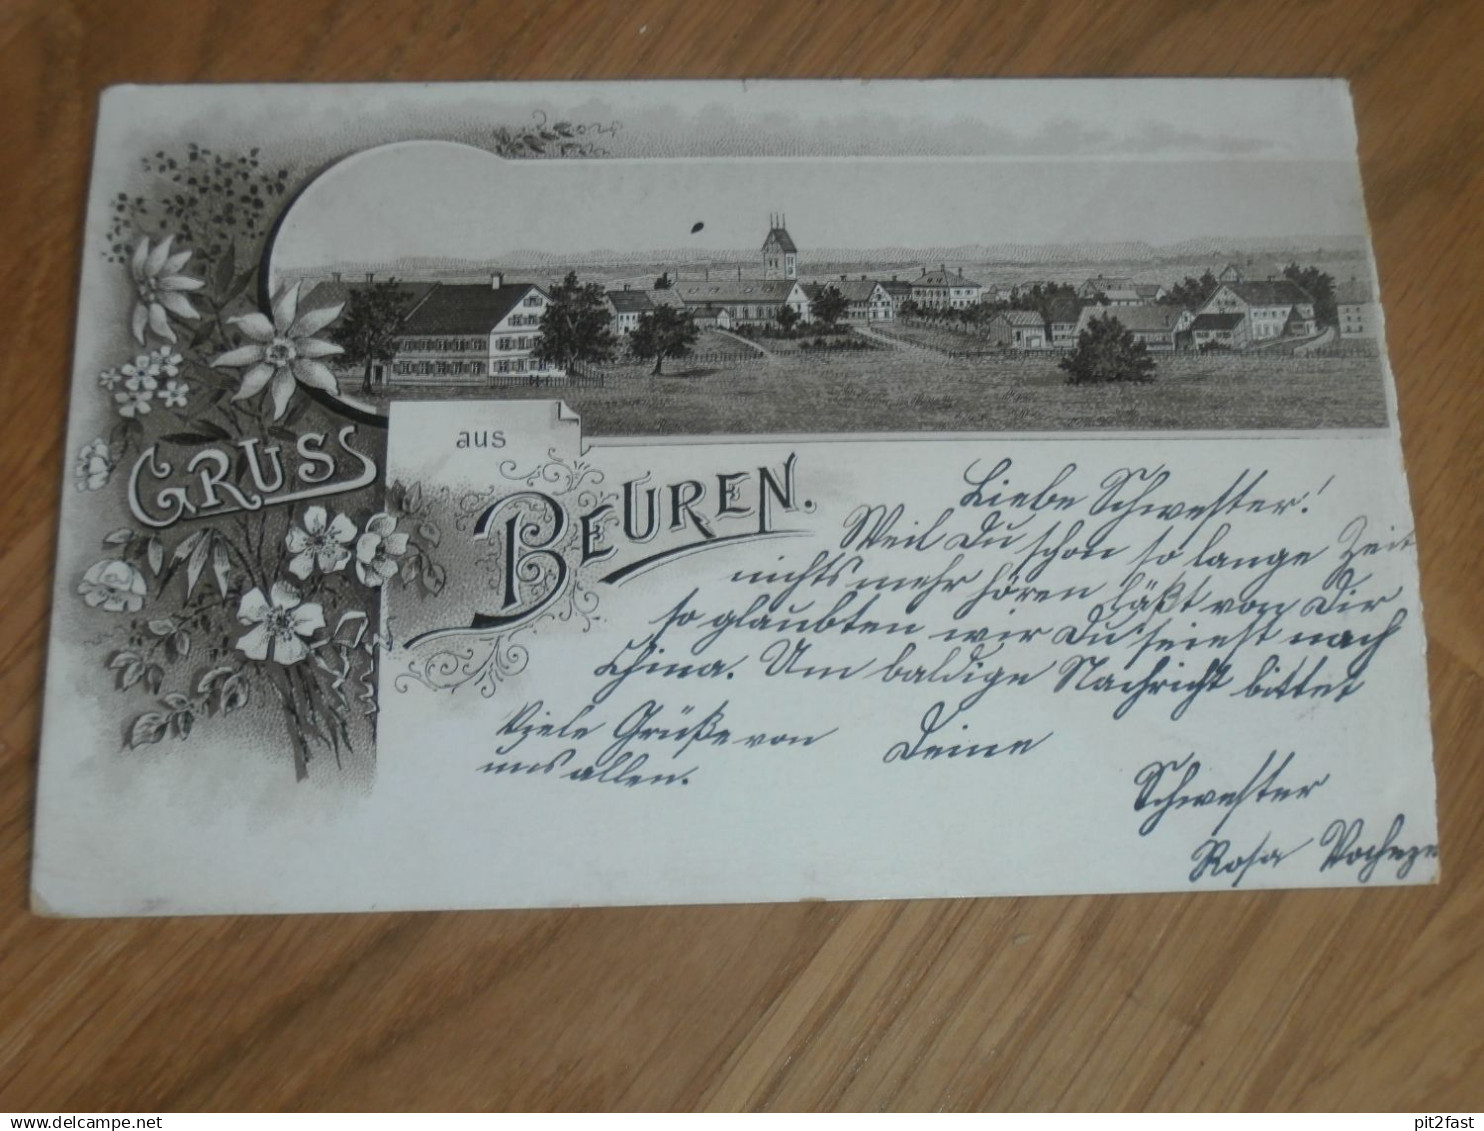 GRUSS
aus
BEUREN.
Liebe Schwester!
Weil Du schon so lange Zeit
nichts mehr hören läßt von Dir
so glaubten wir Du seiest nach
China. Um baldige Nachricht bittet
Viele Grüße von Deine
uns allen.
Schwester
Rosa
pit2fast